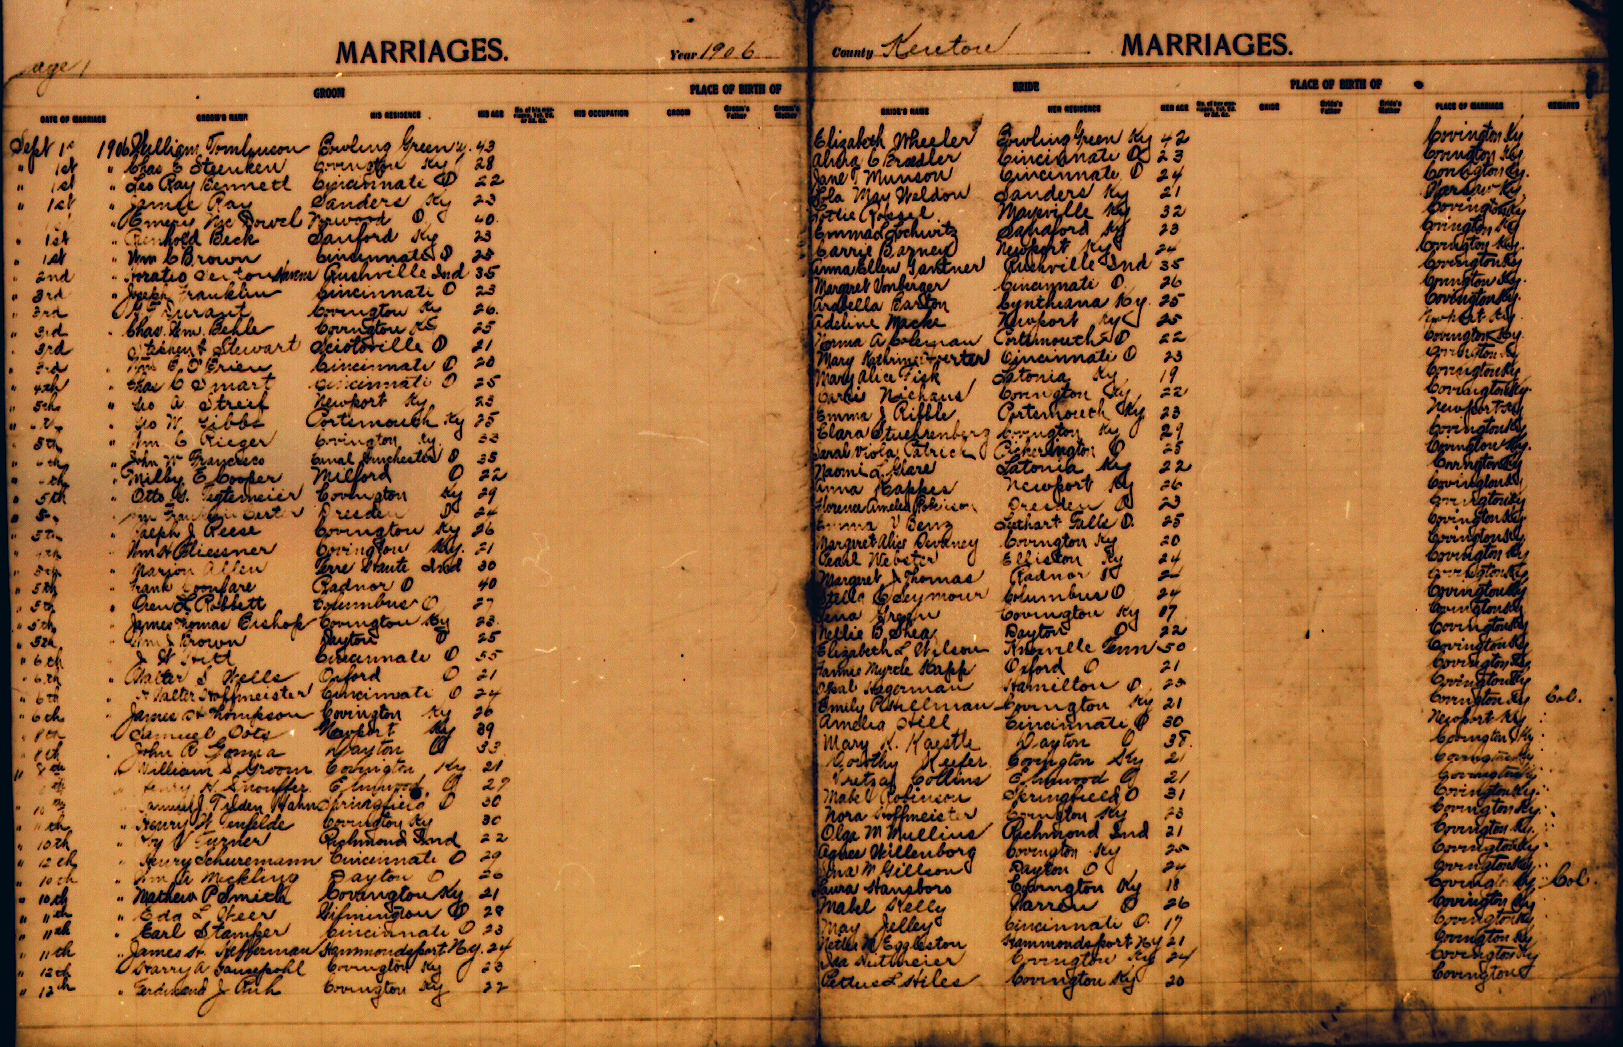 Page 1
MARRIAGES.
Year 1906
GROOM
PLACE OF BIRTH OF
DATE OF MARRIAGE GROOM'S NAME HIS RESIDENCE HIS AGE HIS OCCUPATION GROOM Groom's Father Groom's Mother
Sept 1st 1906 William Tomlinson Bowling Green Ky. 43
" 1st " Chas E Steenken Covington Ky 28
" 1st " Leo Ray Bennett Cincinnati O 22
" 1st " James Ray Sanders Ky 23
" Emery McDowel Norwood O. 40
" 1st " Reinhold Beck Sanford Ky 23
" 1st " Wm C Brown Cincinnati O 25
" 2nd " Horatio Rushville Ind 35
" 3rd " Joseph Franklin Cincinnati O 23
" 3rd " Durant Covington Ky 26
" 3rd " Chas. Wm. Behle Covington Ky 25
" 3rd Stephen Stewart Sciotoville O 21
" 3rd " Wm E. O'Brien Cincinnati O 28
" 4th " Chas C Smart Cincinnati O 25
" 5th " Geo A. Streif Newport Ky 23
" Geo W Gibbs Portsmouth Ky 25
" 5th " Wm. C Rieger Covington Ky. 33
" John W Francisco Canal Winchester O 35
" Milby E Cooper Milford O 22
" 5th " Otto G. Tegtemeier Covington Ky 29
" Dresden O 24
" 5th " Joseph J Reese Covington Ky 26
" " Wm H Pliessner Covington Ky. 21
" 5th " Marion Allen Terre Haute Ind 30
" 5th " Frank Radnor O 40
" 5th " Oren L Robbett Columbus O 27
" 5th " James Thomas Bishop Covington Ky 23
" 5th " Wm J Brown Dayton O 25
" 6th " J W Hitt Cincinnati O 55
" 6th " Walter S Wells Oxford O 21
" 6th " Walter Hoffmeister Cincinnati O 24
" 6th " James H Thompson Covington Ky 26
" 8th " Samuel Oots Newport Ky 39
" 8th " John R Dayton O 33
" 8th " William S. Groom Covington Ky 21
" Henry H Snouffer Elmwood O 29
" 10th " Samuel J Tilden Hahn Springfield O 30
" 11th " Henry W Tenfelde Covington Ky 30
" 10th " Roy V Turner Richmond Ind 22
" 12th " Henry Schuremann Cincinnati O 29
" 10th " Wm A Meckling Dayton O 26
" 10th " Mathew P Smith Covington Ky 21
" 11th " Eda L Weer Wilmington O 28
" 11th " Earl Stamper Cincinnati O 23
" 11th " James H. Hefferman Hammondsport N.Y. 24
" 12th " Harry A Gausepohl Covington Ky 23
" 12th " Ferdinand J Covington Ky 22
County Kenton
MARRIAGES.
BRIDE
PLACE OF BIRTH OF
BRIDE'S NAME HER RESIDENCE HER AGE BRIDE Bride's Father Bride's Mother PLACE OF MARRIAGE REMARKS
Elizabeth Wheeler Bowling Green Ky 42 Covington Ky
Alvina C Braedler Cincinnati O 23 Covington Ky
Jane T Munson Cincinnati O 24 Covington Ky.
Lola May Weldon Sanders Ky 21 Warsaw Ky
Lottie Rossel Maysville Ky 32 Covington Ky
Emma Lochwitz Sanford Ky 23 Covington Ky
Carrie Barnes Newport Ky 24 Covington Ky
Anna Ellen Gantner Rushville Ind 35 Covington Ky
Margaret Vonberger Cincinnati O. 26 Covington Ky
Arabella Barton Cynthiana Ky. 25 Covington Ky.
Adeline Macke Newport Ky 25 Newport Ky
Norma A Coleman Portsmouth O 22 Covington Ky.
Mary Kathrine Cincinnati O 23 Covington Ky
Mary Alice Fisk Latonia Ky 19 Covington Ky
Niehaus Covington Ky 22 Covington Ky.
Emma J Ribble Portsmouth Ky 23 Newport Ky
Clara Stuehrenberg Covington Ky 29 Covington Ky
Sarah Viola Patrick Pickerington O 25 Covington Ky.
Naomi L Glare Latonia Ky 22 Covington Ky
Anna Kappes Newport Ky 26 Covington Ky
Florence Amelia Robinson Dresden O 23 Covington Ky
Emma V Benz Lethart Falls O. 25 Covington Ky
Margaret Alice Devaney Covington Ky 20 Covington Ky
Pearl Webster Elliston Ky 24 Covington Ky
Margaret J Thomas Radnor O 24 Covington Ky
Stella C Seymour Columbus O 24 Covington Ky
Lena Green Covington Ky 17 Covington Ky
Nellie B Shea Dayton O 22 Covington Ky
Elizabeth L Wilson Knoxville Tenn 50 Covington Ky
Fannie Myrtle Kapp Oxford O 21 Covington Ky
Opal Hagerman Hamilton O. 25 Covington Ky
Emily P Stillman Covington Ky 21 Covington Ky Col.
Amelia Hill Cincinnati O 30 Newport Ky
Mary K. Kaestle Dayton O 38. Covington Ky
Dorothy Keefer Covington Ky 21 Covington Ky
Collins Elmwood O 21 Covington Ky
Mabel Robinson Springfield O 31 Covington Ky.
Nora Hoffmeister Covington Ky 23 Covington Ky.
Olga M Mullins Richmond Ind 21 Covington Ky.
Agnes Willenborg Covington Ky 25 Covington Ky
Ina M Gillson Dayton O 24 Covington Ky
Laura Hansboro Covington Ky 18 Covington Ky Col.
Mabel Kelly Warren O 26 Covington Ky
May Jelley Cincinnati O. 17 Covington Ky
Nettie M Eggleston Hammondsport N.Y 21 Covington Ky
Ida Covington Ky 24 Covington Ky
Pettus L Hiles Covington Ky 20 Covington